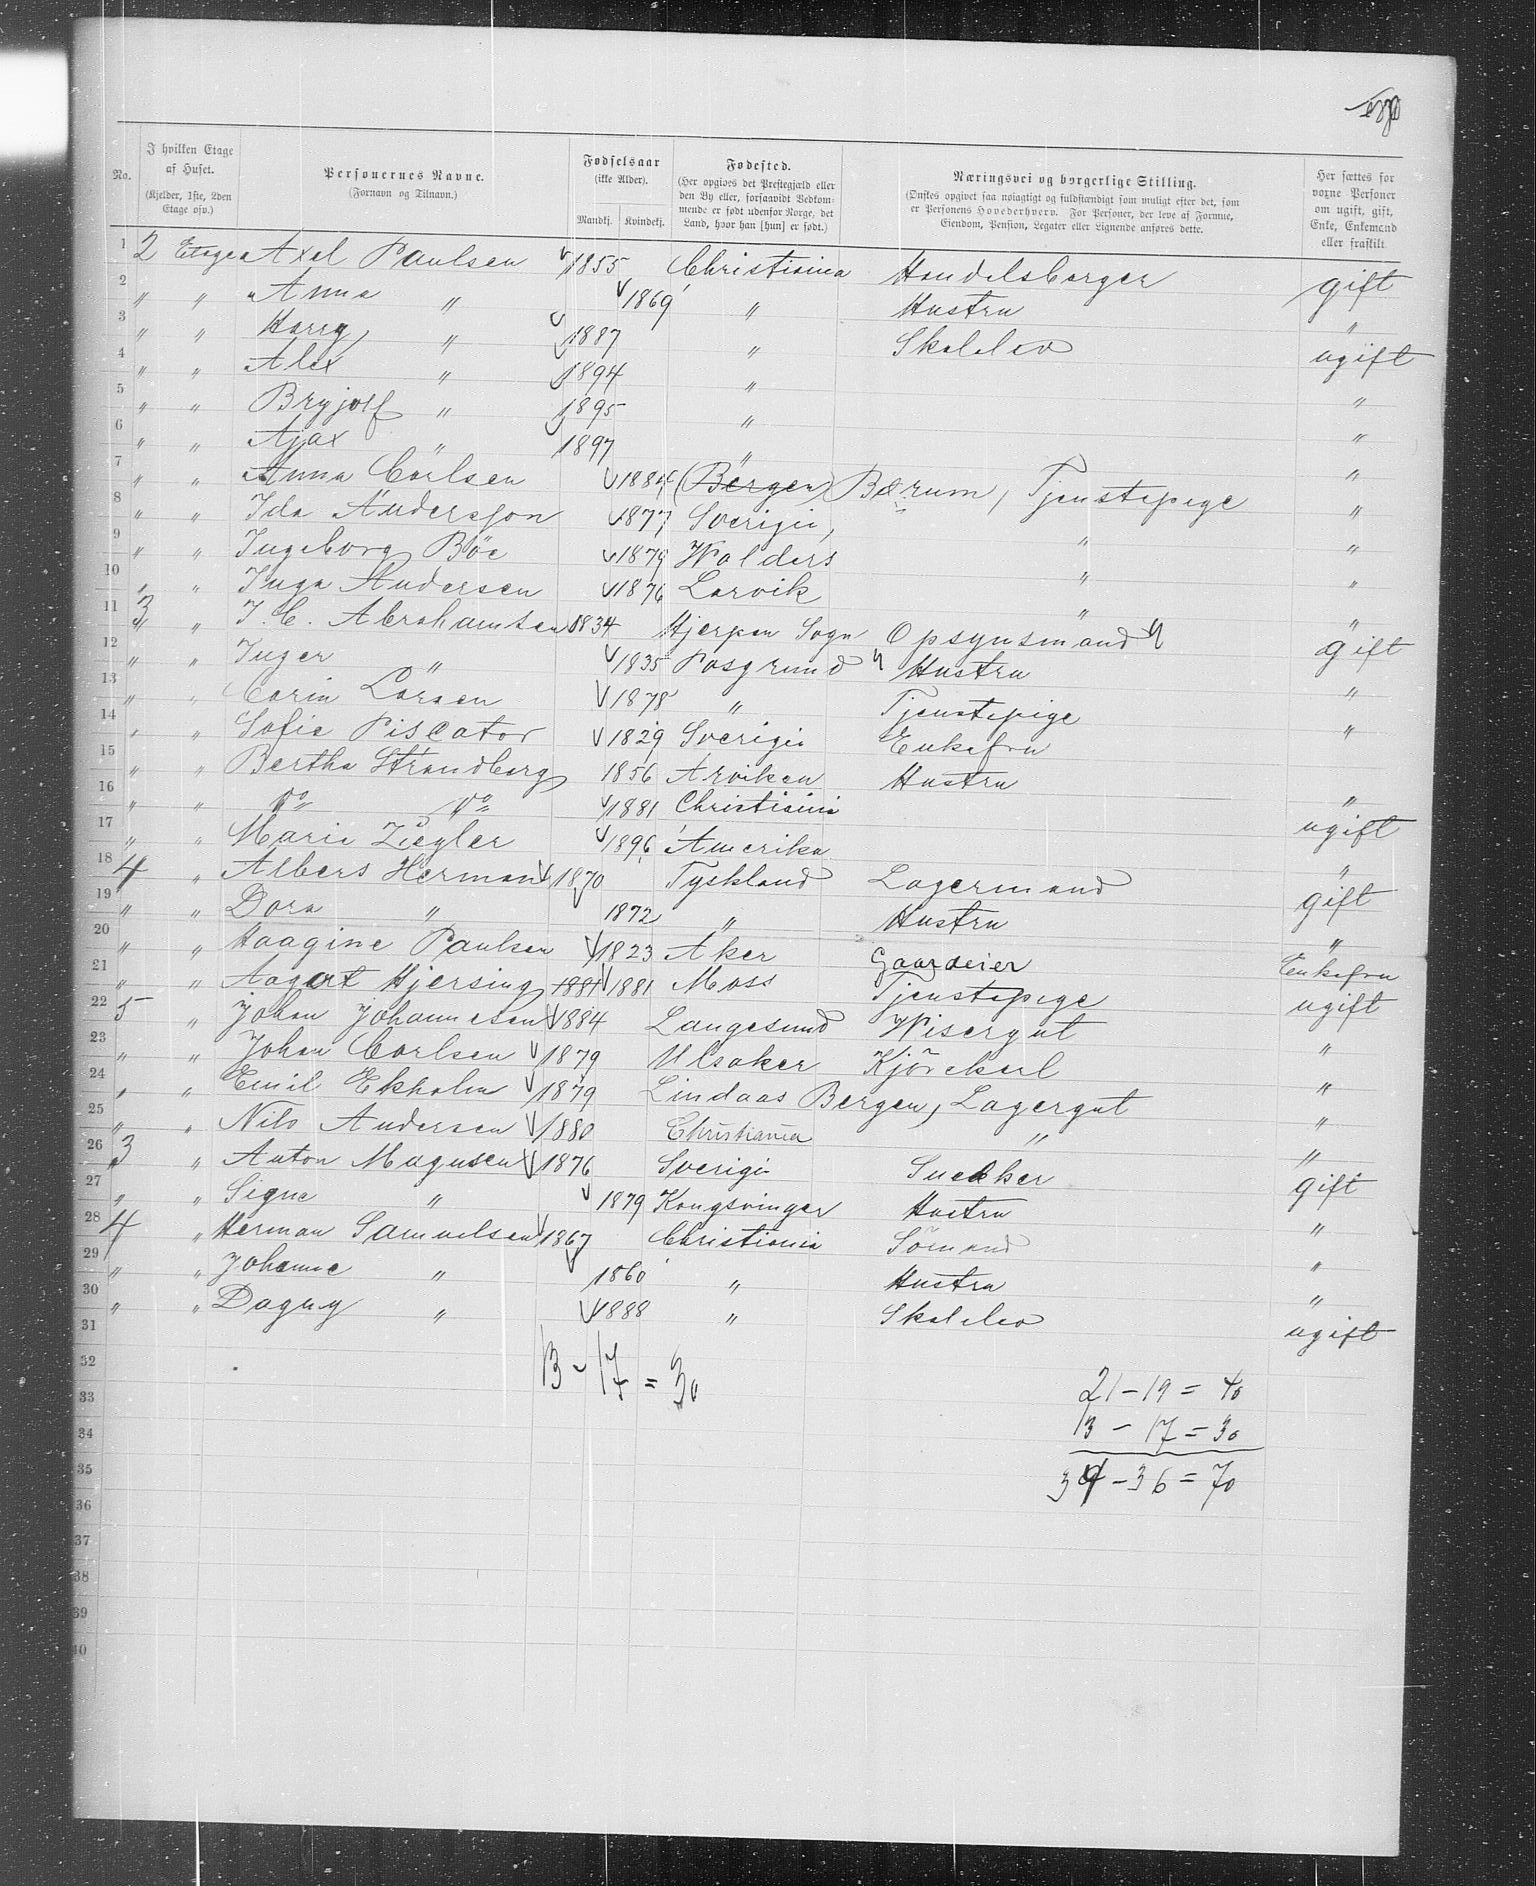 No. I hvilken Etage af Huset. (Kjelder, 1ste, 2den Etage osv.) Personernes Navne. (Fornavn og Tilnavn.) Fødselsaar (ikke Alder). Mandkj. Kvindekj. Fødested. (Her opgives det Prestegjæld eller den By eller, forsaavidt Vedkommende er født udenfor Norge, det Land, hvor han [hun] er født.) Næringsvei og borgerlige Stilling. (Ønskes opgivet saa nøiagtigt og fuldstændigt som muligt efter det, som er Personens Hovederhverv. For Personer, der leve af Formue, Eiendom, Pension, Legater eller Lignende anføres dette. Her sættes for voxne Personer om ugift, gift, Enke, Enkemand eller fraskilt.
1 2 Etage Axel Paulsen 1855 Christiania Handelsborger gift
2 " " Anna " 1869 " Hustru "
3 " " Harry " 1887 " Skoleelev ugift
4 " " Alex " 1894 "
5 " " Brynjolf " 1895 " "
6 " " Ajax " 1897 " "
7 " " Anna Carlsen 1884 (Bergen) Bærum, Tjenstepige "
8 " " Ida Andersson 1877 Sverige, " "
9 " " Ingeborg Böe 1879 Walders " "
10 " " Inga Andersen 1876 Larvik " "
11 3 " J. C. Abrahamsen 1834 Hjerpen Sogn Opsynsmand gift
12 " " Inger " 1835 Posgrund Hustru "
13 " " Carin Larsen 1878 " Tjenstepige "
14 " " Sofie Piscator 1829 Sverige Enkefru
15 " " Bertha Strandberg 1856 Arviken Hustru "
16 " " do do 1881 Christiania ugift
17 " " Marie Ziegler 1896 Amerika "
18 4 " Albers Herman 1870 Tyskland Lagermand gift
19 " " Dora " 1872 " Hustru "
20 " " Haagine Paulsen 1823 Aker Gaardeier Enkefru
21 " " Aagot Hjersing 1881 1881 Moss Tjenstepige ugift
22 5 " Johan Johannesen 1884 Langesund Wisergut "
23 " " Johan Carlsen 1879 Ulsaker Kjörekarl "
24 " " Emil Ekholm 1879 Lindaas Bergen, Lagergut "
25 " " Nils Andersen 1880 Christiania " "
26 3 " Anton Magnsen 1876 Sverige Snekker gift
27 " " Signe " 1879 Kongsvinger Hustru "
28 4 " Herman Samuelsen 1867 Christiania Sömand "
29 " " Johanne " 1860 " Hustru "
30 " " Dagny " 1888 " Skoleelev ugift
31
32 13 - 17 = 30
33 21 - 19 = 40
34 13 - 17 = 30
35 34 - 36 = 70
36
37
38
39
40